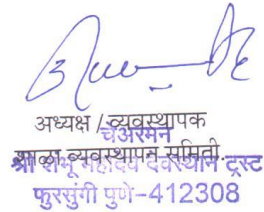 अध्यक्ष / व्यवस्थापक
चेअरमन
शाळा व्यवस्थापन समिती.
श्री शंभू महादेव देवस्थान ट्रस्ट
फुरसुंगी पुणे-412308